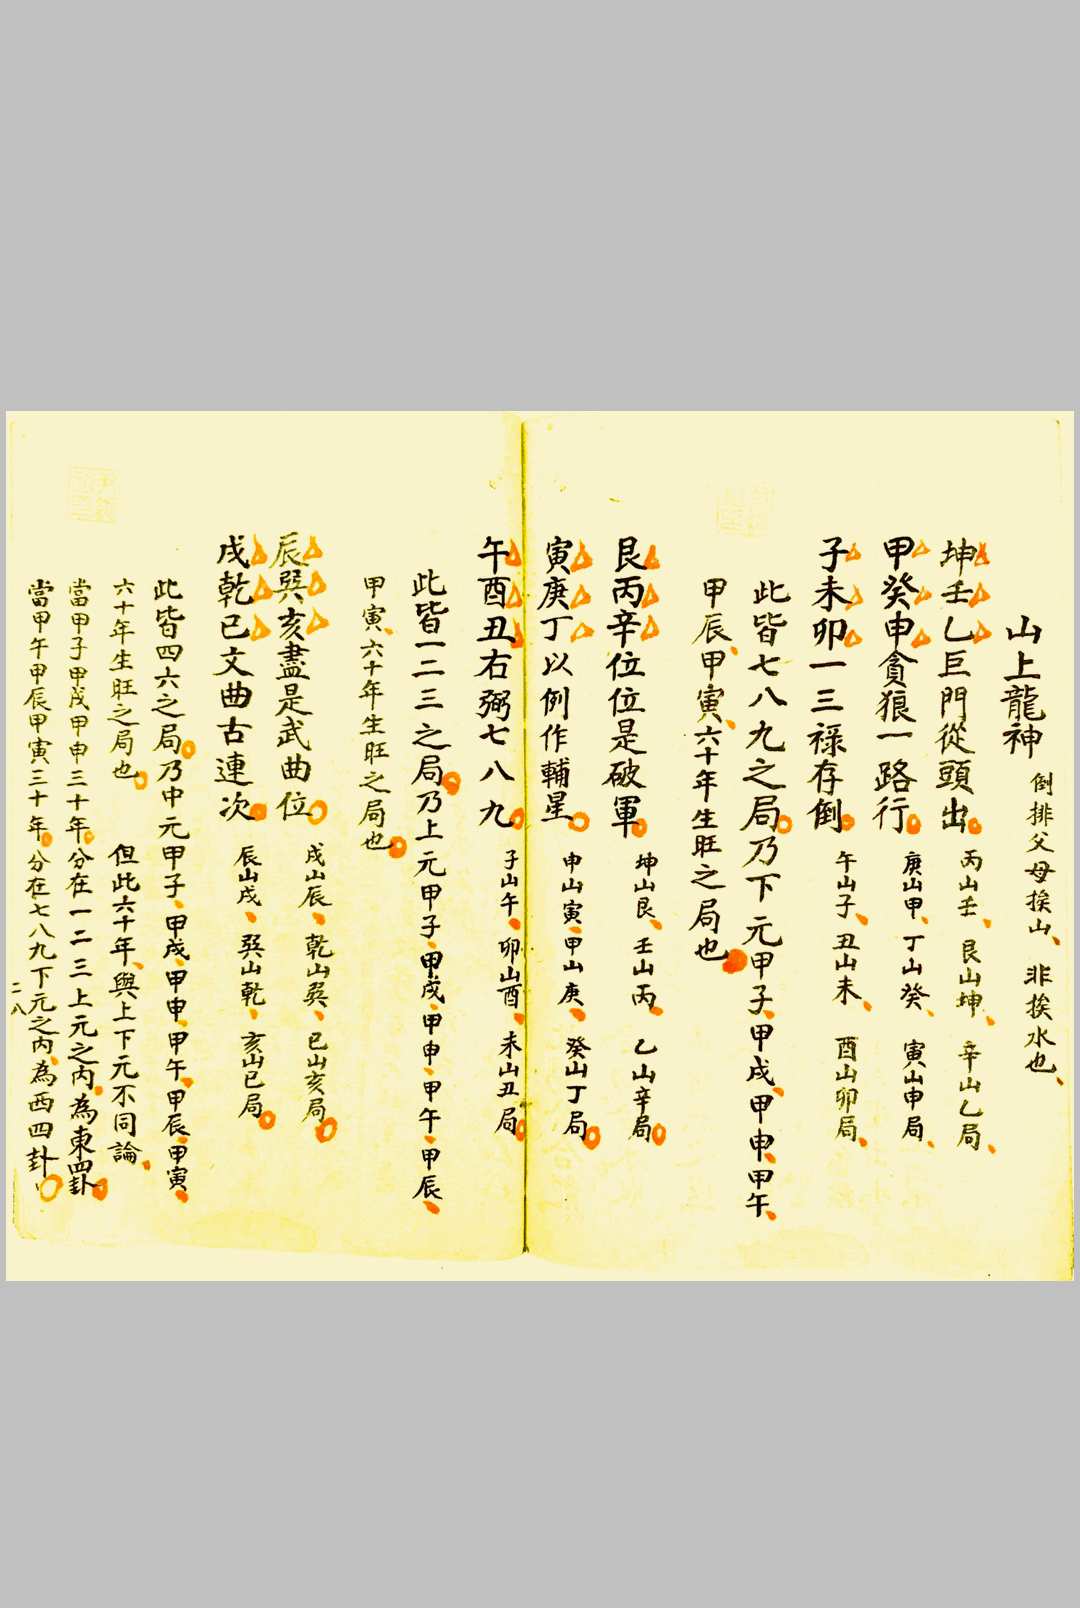 山上龍神 倒排父母挨山、非挨水也、
坤壬乙巨門從頭出 丙山壬、艮山坤、辛山乙局、
甲癸申貪狼一路行 庚山甲、丁山癸、寅山申局、
子未卯一三祿存倒 午山子、丑山未、酉山卯局、
此皆七八九之局乃下元甲子、甲戌、甲申、甲午、
甲辰、甲寅、六十年生旺之局也
艮丙辛位位是破軍 坤山艮、壬山丙、乙山辛局
寅庚丁以例作輔星 申山寅、甲山庚、癸山丁局
午酉丑右弼七八九 子山午、卯山酉、未山丑局
此皆一二三之局乃上元甲子、甲戌、甲申、甲午、甲辰、
甲寅、六十年生旺之局也
辰巽亥盡是武曲位 戌山辰、乾山巽、巳山亥局
戌乾巳文曲古連次 辰山戌、巽山乾、亥山巳局
此皆四六之局乃中元甲子、甲戌、甲申、甲午、甲辰、甲寅、
六十年生旺之局也 但此六十年、與上下元不同論、
當甲子甲戌甲申三十年分在一二三上元之內、為東四卦
當甲午甲辰甲寅三十年分在七八九下元之內、為西四卦、
二八